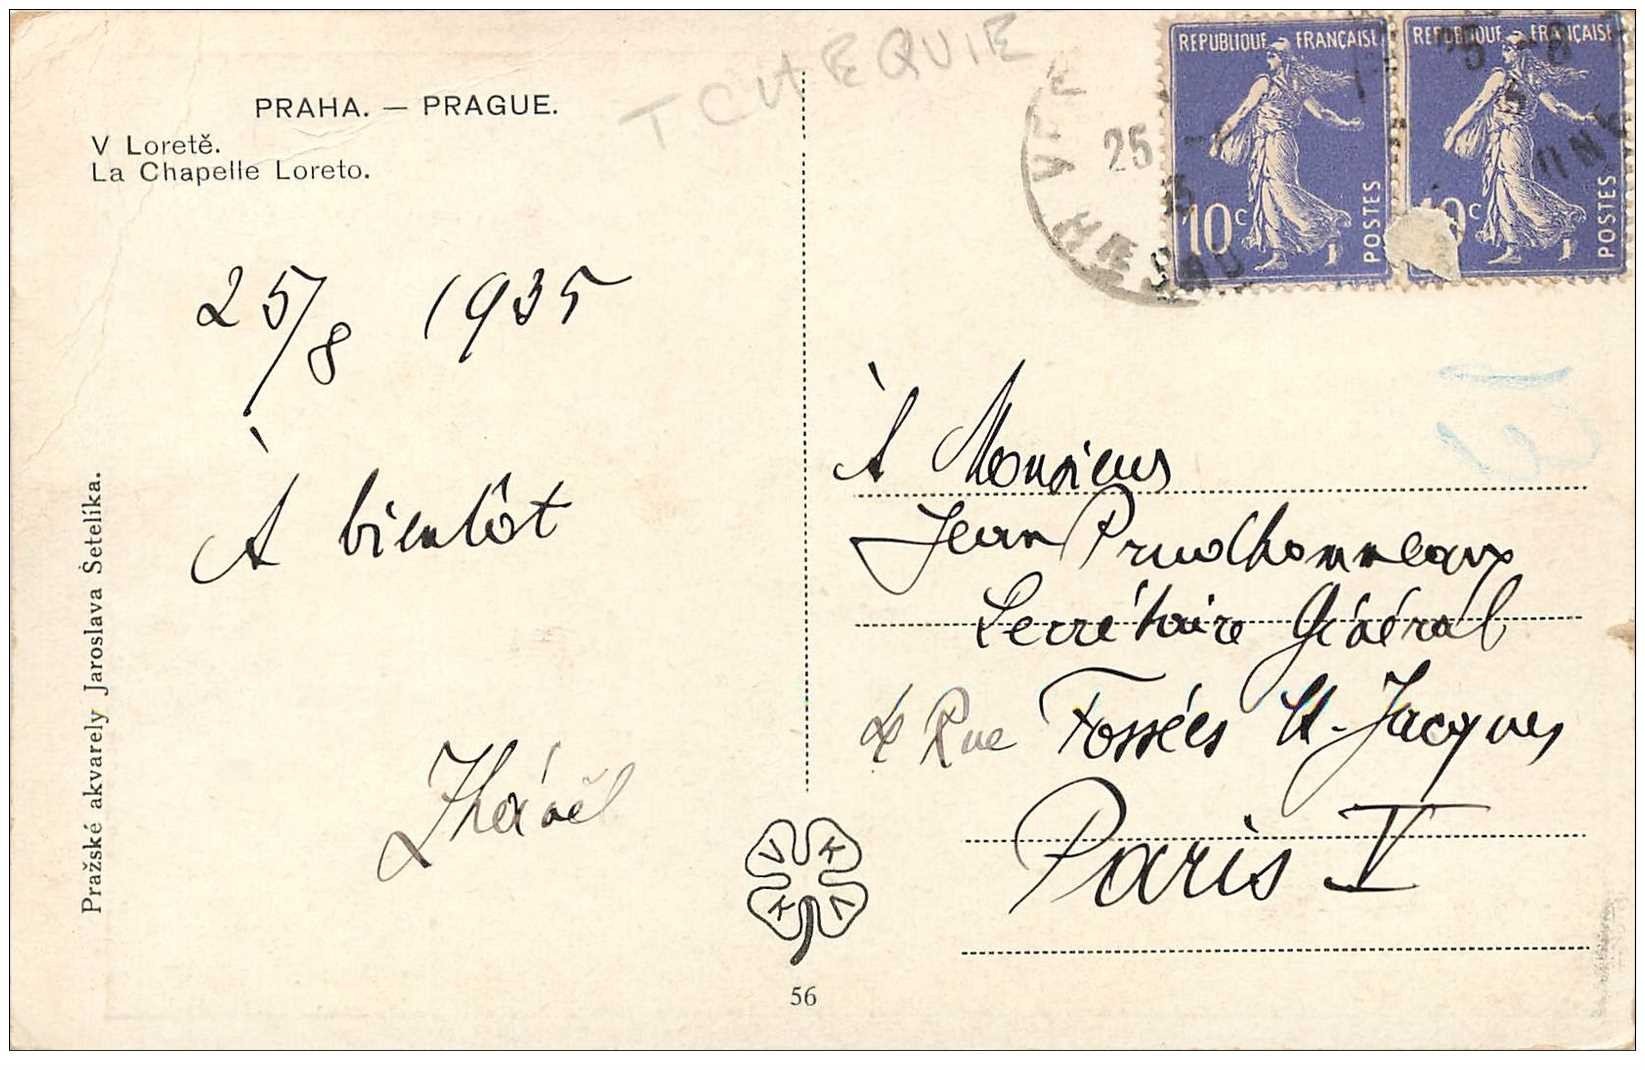 PRAHA. — PRAGUE.
V Loretě.
La Chapelle Loreto.
TCHEQUIE
25 -8
25 -8
REPUBLIQUE FRANÇAISE
10c
POSTES
REPUBLIQUE FRANÇAISE
10c
POSTES
25/8 1935
À bientôt
À Monsieur
Jean Prudhommeaux
Secrétaire Général
Rue Fossées St-Jacques
Paris V
Pražské akvarely Jaroslava Šetelíka.
V K
K V
56